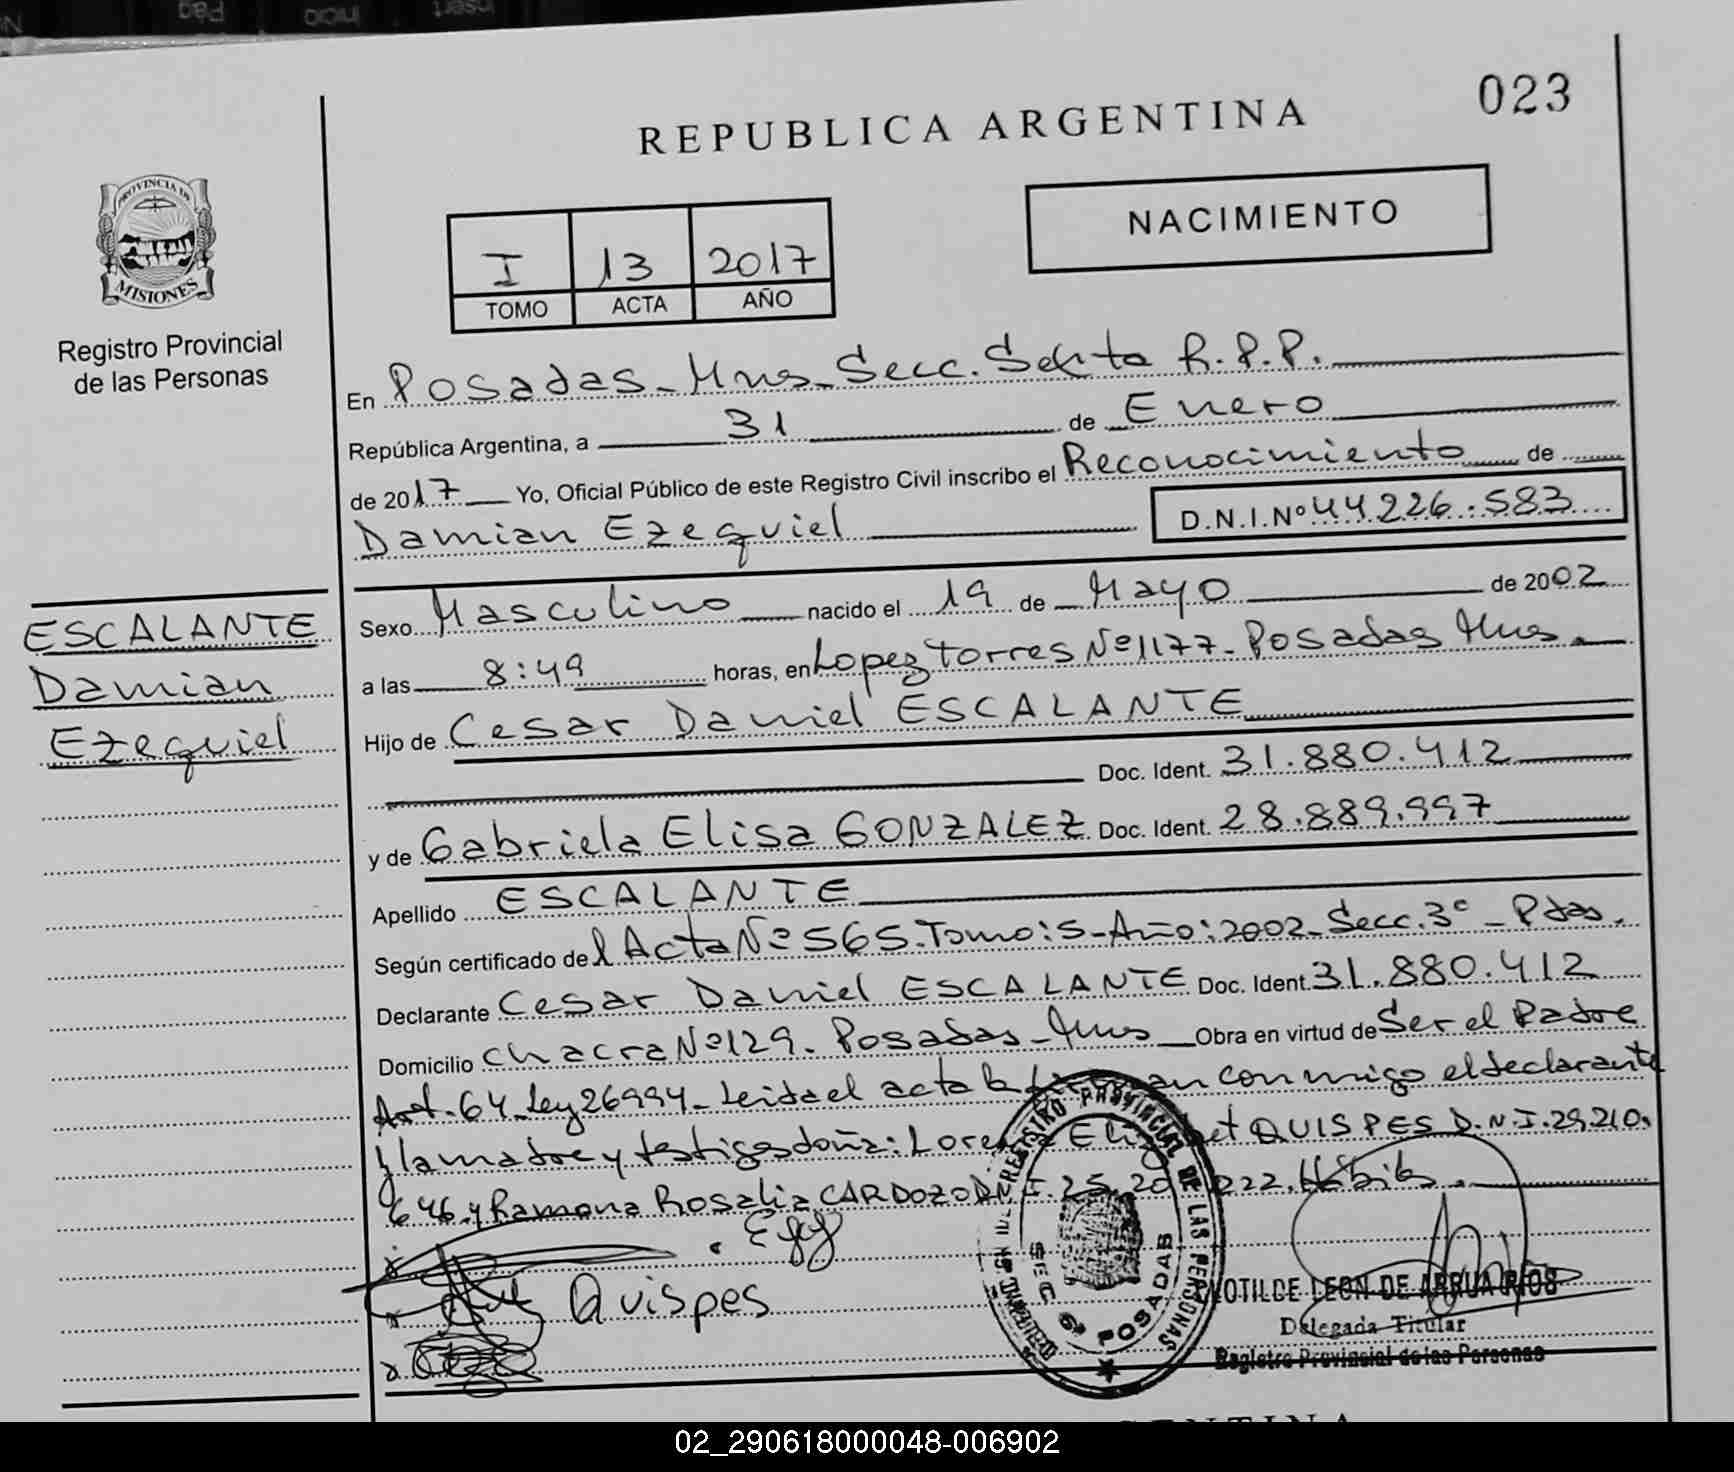 Insert
Inicio
Pág
023
REPUBLICA ARGENTINA
PROVINCIA DE
MISIONES
Registro Provincial
de las Personas
NACIMIENTO
I 13 2017
TOMO ACTA AÑO
En Posadas - Mnes - Secc. Sexta R.P.P.
República Argentina, a 31 de Enero
de 2017 Yo, Oficial Público de este Registro Civil inscribo el Reconocimiento de
Damian Ezequiel D.N.I.Nº 44.226.583
ESCALANTE
Damian
Ezequiel
Sexo Masculino nacido el 19 de Mayo de 2002
a las 8:49 horas, en Lopez Torres Nº 1177 - Posadas Mnes
Hijo de Cesar Daniel ESCALANTE
Doc. Ident. 31.880.412
y de Gabriela Elisa GONZALEZ Doc. Ident. 28.889.997
Apellido ESCALANTE
Según certificado del Acta Nº 565. Tomo: 5 - Año: 2002 - Secc. 3º - Pdas.
Declarante Cesar Daniel ESCALANTE Doc. Ident. 31.880.412
Domicilio Chacra Nº 129. Posadas - Mnes Obra en virtud de Ser el Padre
Art. 64 Ley 26994 - Leida el acta la conmigo el declarante
y la madre y testigos doña: QUISPES D.N.I. 29.210.
646 y Ramona Rosalia CARDOZO D.N.I. 25.20 222. Hábiles.
Quispes
REGISTRO PROVINCIAL DE LAS PERSONAS
SEC 6ª POSADAS
CLOTILDE LEON DE ARRUA RIOS
Delegada Titular
Registro Provincial de las Personas
02_290618000048-006902